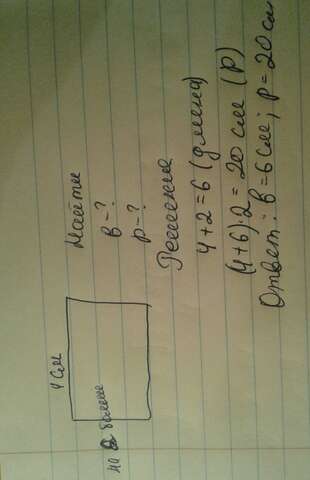 4 см
на 2 больше
Найти
в-?
р-?
Решение
4+2=6 (длина)
(4+6)·2=20 см (р)
Ответ: в=6см; р=20 см